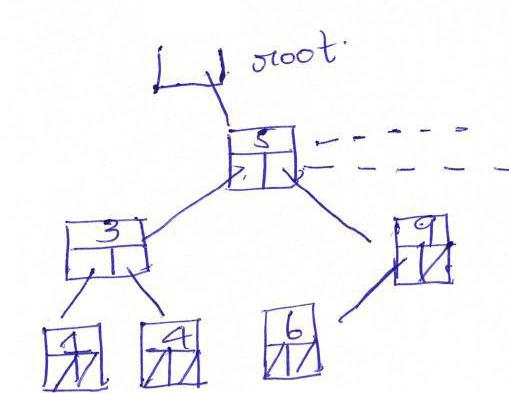 root.
5
3 9
1 4 6